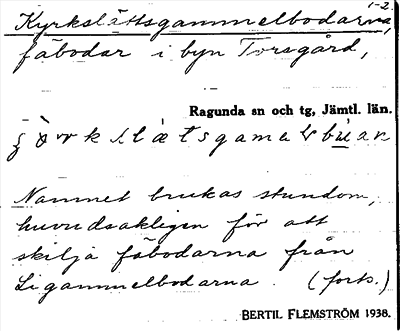 1-2.
Kyrkslättsgammelbodarna,
fäbodar i byn Torsgård,
Ragunda sn och tg, Jämtl. län.
Namnet brukas stundom,
huvudsakligen för att
skilja fäbodarna från
Ligammelbodarna. (forts.)
BERTIL FLEMSTRÖM 1938.